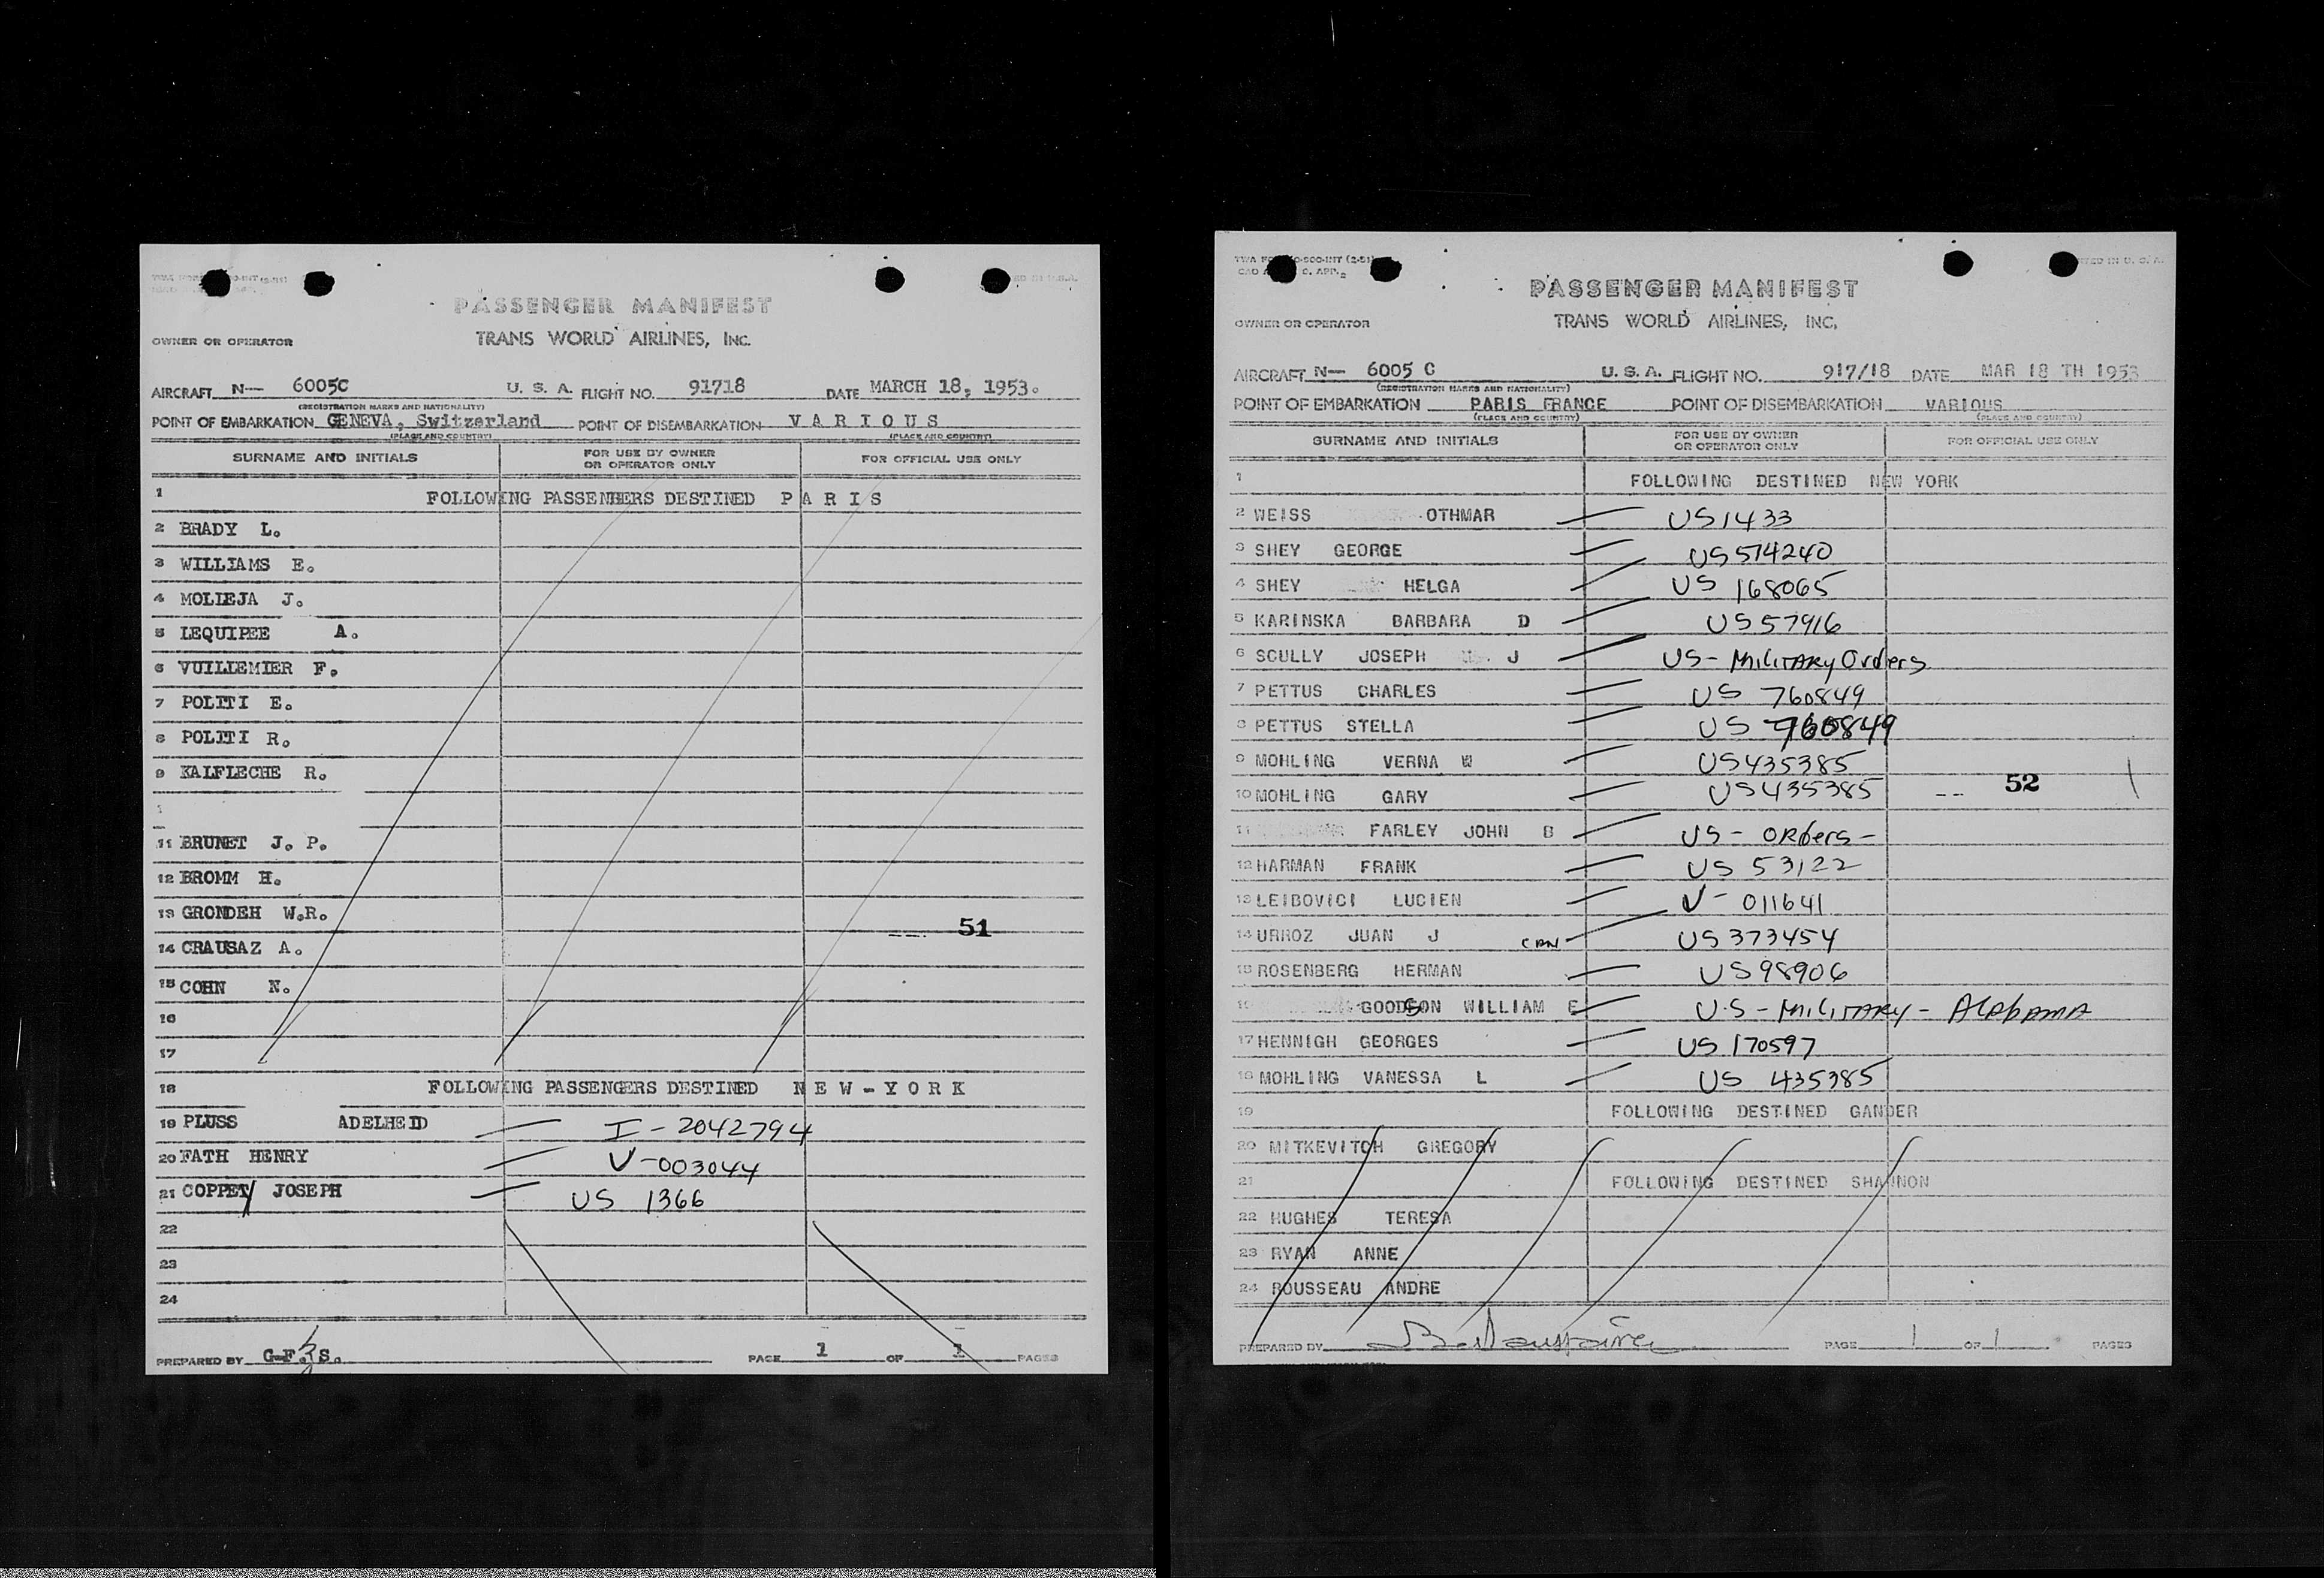 PASSENGER MANIFEST
OWNER OR OPERATOR TRANS WORLD AIRLINES, INC.
AIRCRAFT N— 6005C U. S. A. FLIGHT NO. 91718 DATE MARCH 18, 1953.
(REGISTRATION MARKS AND NATIONALITY)
POINT OF EMBARKATION GENEVA, Switzerland POINT OF DISEMBARKATION V A R I O U S
(PLACE AND COUNTRY) (PLACE AND COUNTRY)
SURNAME AND INITIALS FOR USE BY OWNER OR OPERATOR ONLY FOR OFFICIAL USE ONLY
1 FOLLOWING PASSENGERS DESTINED P A R I S
2 BRADY L.
3 WILLIAMS E.
4 MOLIEJA J.
5 LEQUIPEE A.
6 VUILLEMIER F.
7 POLITI E.
8 POLITI R.
9 KALFLECHE R.
1
11 BRUNET J. P.
12 BROMM H.
13 GRONDEH W.R.
51
14 CRAUSAZ A.
15 COHN N.
16
17
18 FOLLOWING PASSENGERS DESTINED N E W - Y O R K
19 PLUSS ADELHEID I - 2042794
20 FATH HENRY V-003044
21 COPPET/ JOSEPH US 1366
22
23
24
PREPARED BY G.F.S. PAGE 1 OF 1 PAGES
PASSENGER MANIFEST
OWNER OR OPERATOR TRANS WORLD AIRLINES, INC.
AIRCRAFT N— 6005 C U. S. A. FLIGHT NO. 917/18 DATE MAR 18 TH 1953
(REGISTRATION MARKS AND NATIONALITY)
POINT OF EMBARKATION PARIS FRANCE POINT OF DISEMBARKATION VARIOUS
(PLACE AND COUNTRY) (PLACE AND COUNTRY)
SURNAME AND INITIALS FOR USE BY OWNER OR OPERATOR ONLY FOR OFFICIAL USE ONLY
1 FOLLOWING DESTINED NEW YORK
2 WEISS OTHMAR US1433
3 SHEY GEORGE US 514240
4 SHEY HELGA US 168065
5 KARINSKA BARBARA D US57916
6 SCULLY JOSEPH J US- Military Orders
7 PETTUS CHARLES US 760849
8 PETTUS STELLA US 760849
9 MOHLING VERNA W US435385
10 MOHLING GARY US435385
52
11 FARLEY JOHN B US - Orders -
12 HARMAN FRANK US 53122
13 LEIBOVICI LUCIEN V - 011641
14 URROZ JUAN J US 373454
15 ROSENBERG HERMAN US98906
16 GOODSON WILLIAM E U.S - Military - Alabama
17 HENNIGH GEORGES US 170597
18 MOHLING VANESSA L US 435385
19 FOLLOWING DESTINED GANDER
20 MITKEVITCH GREGORY
21 FOLLOWING DESTINED SHANNON
22 HUGHES TERESA
23 RYAN ANNE
24 ROUSSEAU ANDRE
PREPARED BY PAGE 1 OF 1 PAGES